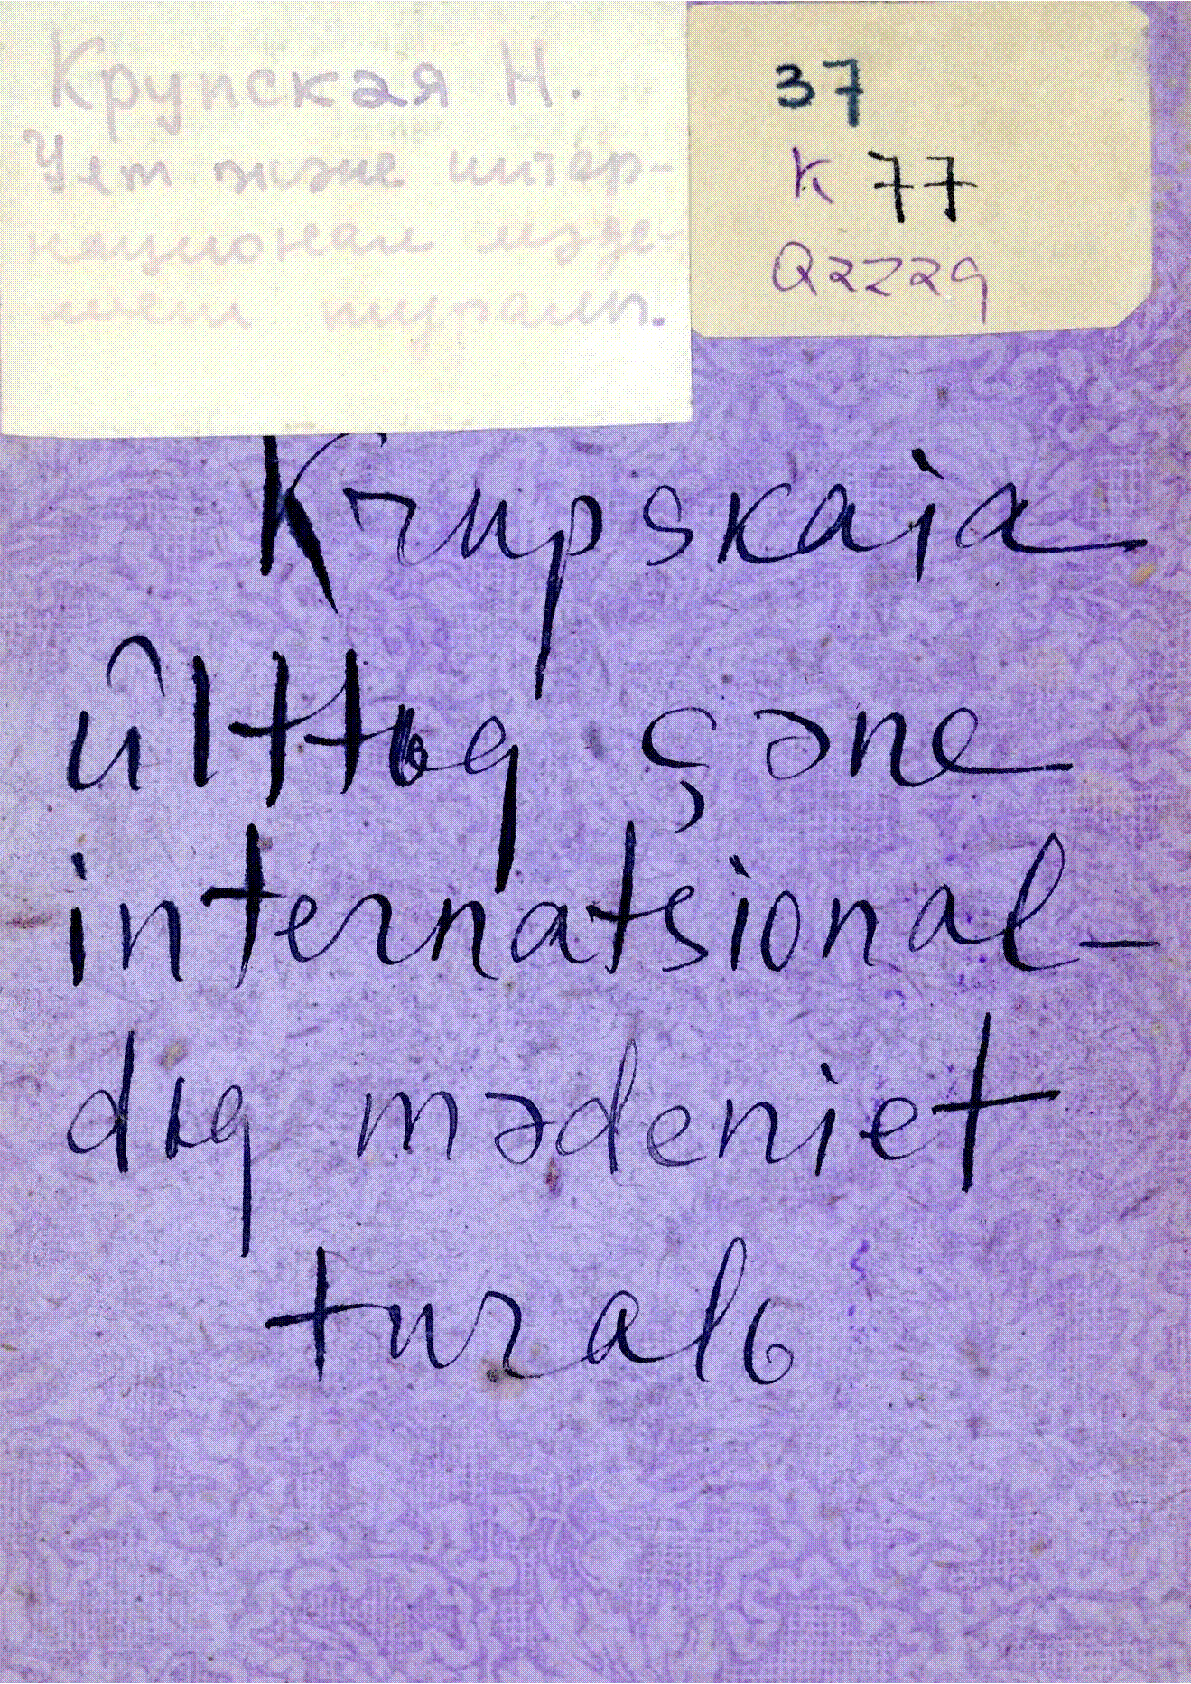 Крупская Н.
Ұлт және интер-
национал мәде-
ниет туралы.
37
К 77
Qazaq
Krupskaia
ûlttьq çәne
internatsional-
dьq mәdeniet
turalь